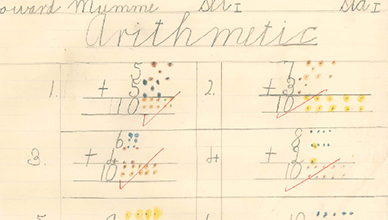 oward Mumme Del I Sta I
Arithmetic
1. 5 + 5 10
2. 7 + 3 10
3. 6 + 4 10
4 8 + 2 10